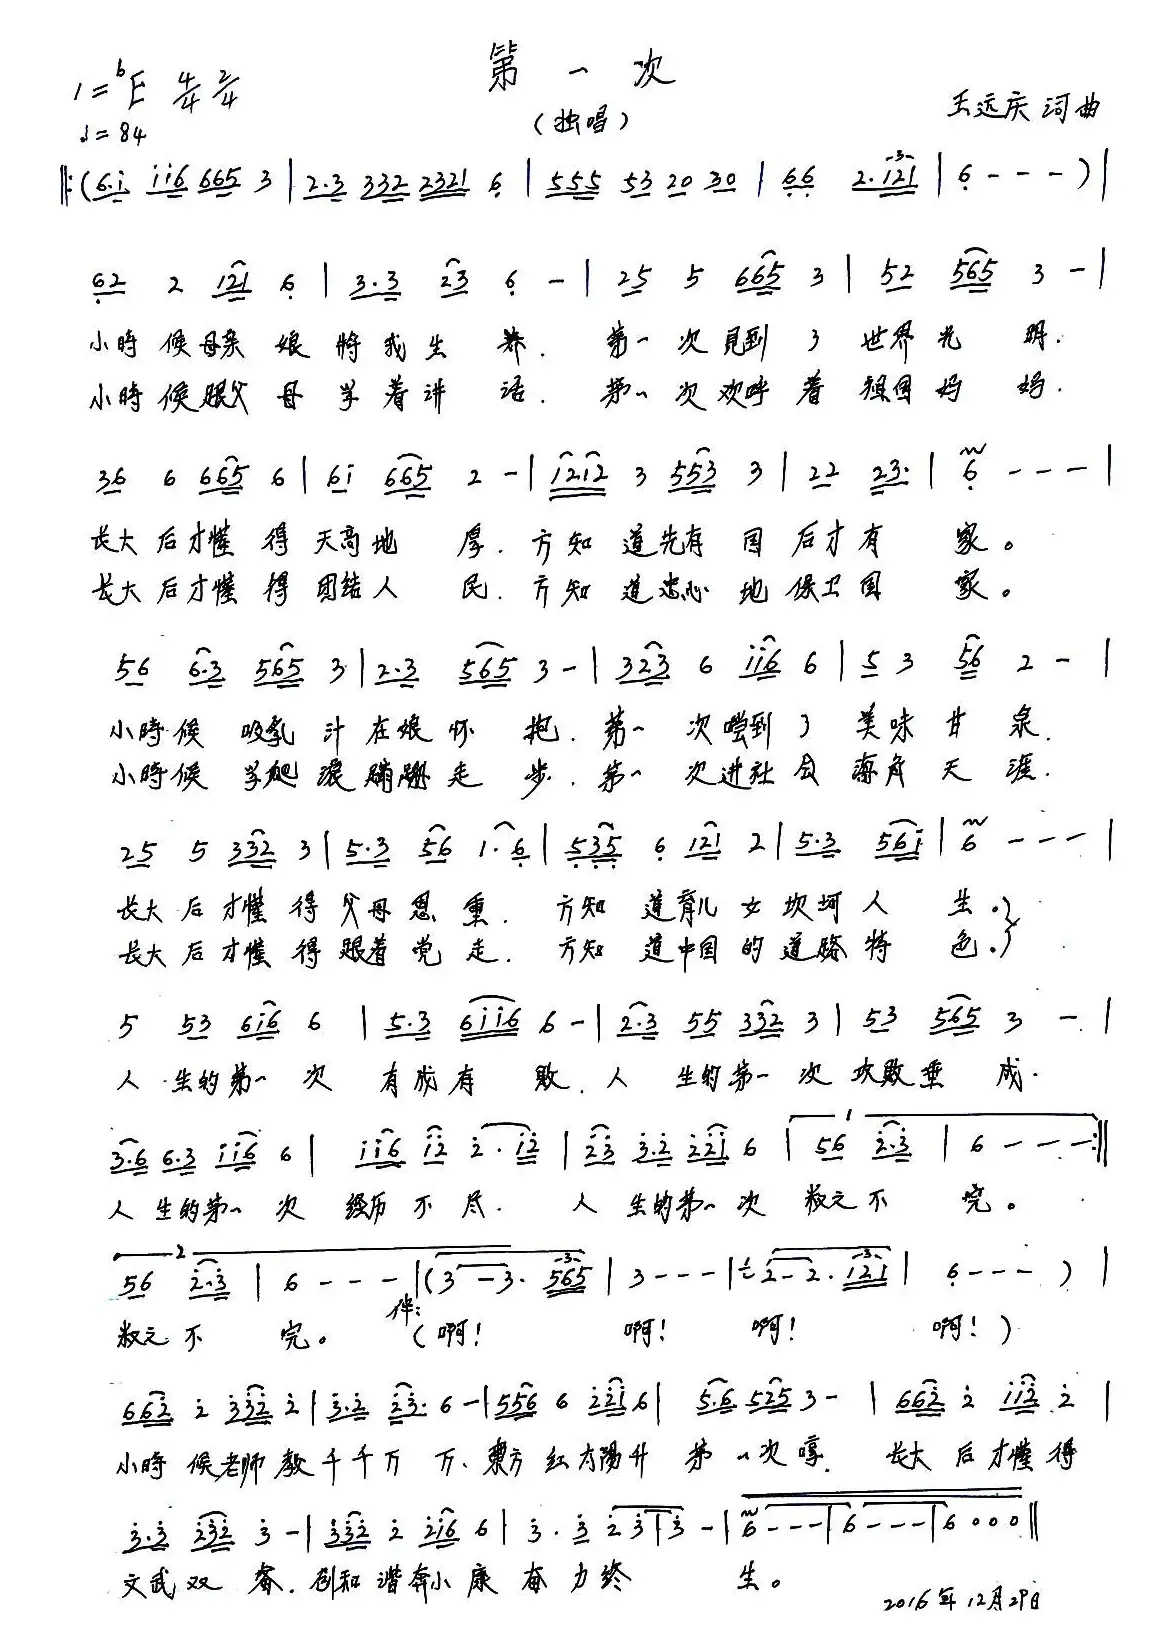 第一次
1=♭E 4/4 2/4
♩=84
（独唱）
王远庆 词曲
‖:(6.i ii6 665 3 | 2.3 332 2321 6 | 555 53 20 30 | 66 2.121 | 6 - - - ) |
62 2 121 6 | 3.3 23 6 - | 25 5 665 3 | 52 565 3 - |
小時候母亲娘将我生养．第一次見到了世界光明．
小時候跟父母学着讲话．第一次欢呼着祖国妈妈．
36 6 665 6 | 6i 665 2 - | 1212 3 553 3 | 22 23. | 6 - - - |
长大后才懂得天高地厚．方知道先有国后才有家。
长大后才懂得团结人民．方知道忠心地保卫国家。
56 6.3 565 3 | 2.3 565 3 - | 323 6 ii6 6 | 5 3 56 2 - |
小時候吸乳汁在娘怀抱．第一次嚐到了美味甘泉．
小時候学爬滚蹒跚走步．第一次进社会海角天涯．
25 5 332 3 | 5.3 56 1.6 | 535 6 121 2 | 5.3 56i | 6 - - - |
长大后才懂得父母恩重．方知道育儿女坎坷人生．
长大后才懂得跟着党走．方知道中国的道路特色．
5 53 6i6 6 | 5.3 6ii6 6 - | 2.3 55 332 3 | 53 565 3 - |
人生的第一次有成有败．人生的第一次坎败垂成．
3.6 6.3 ii6 6 | iii6 i2 2.i2 | 23 3.2 22i 6 | 1 56 2.3 | 6 - - - :‖
人生的第一次经历不尽．人生的第一次数之不完。
2 56 2.3 | 6 - - - | (3 - 3. 565 | 3 - - - | 2 - 2. 121 | 6 - - - ) |
数之不完。伴：（啊！啊！啊！啊！）
662 2 332 2 | 3.2 23. 6 - | 556 6 22i 6 | 5.6 525 3 - | 662 2 ii2 2 |
小時候老师教千千万万、東方红太陽升第一次哼．长大后才懂得
3.3 232 3 - | 332 2 2i6 6 | 3. 3 2 3 3 - | 6 - - - | 6 - - - | 6 0 0 0 ‖
文武双奋．创和谐奔小康奋力终生。
2016年12月29日